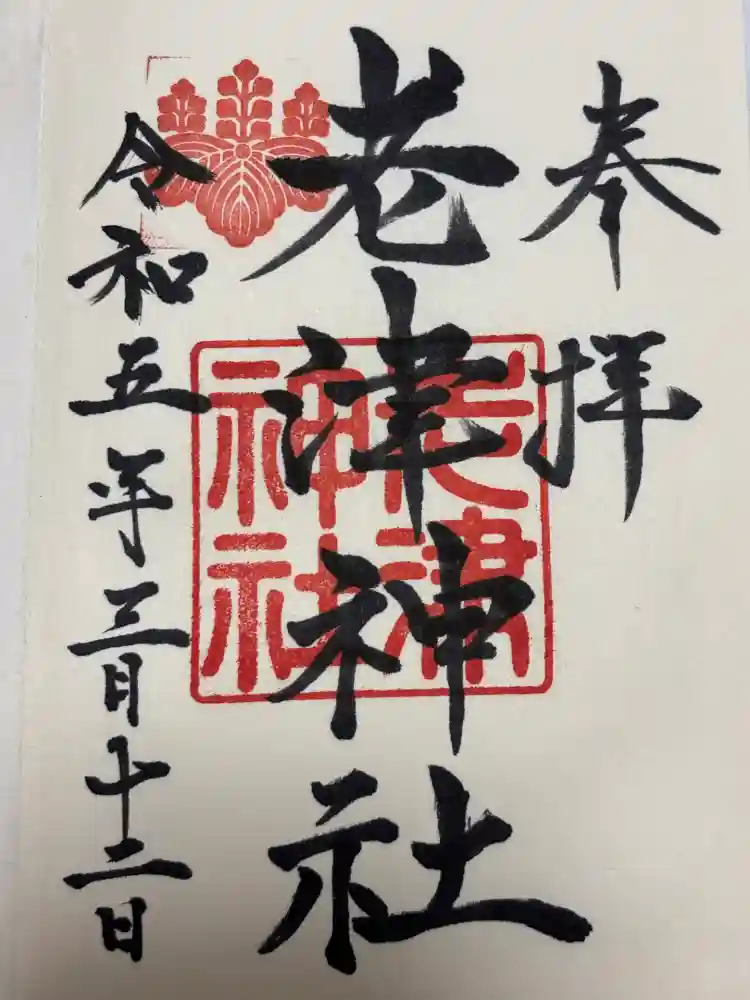 奉拝
老津神社
老津神社
令和五年三月十二日